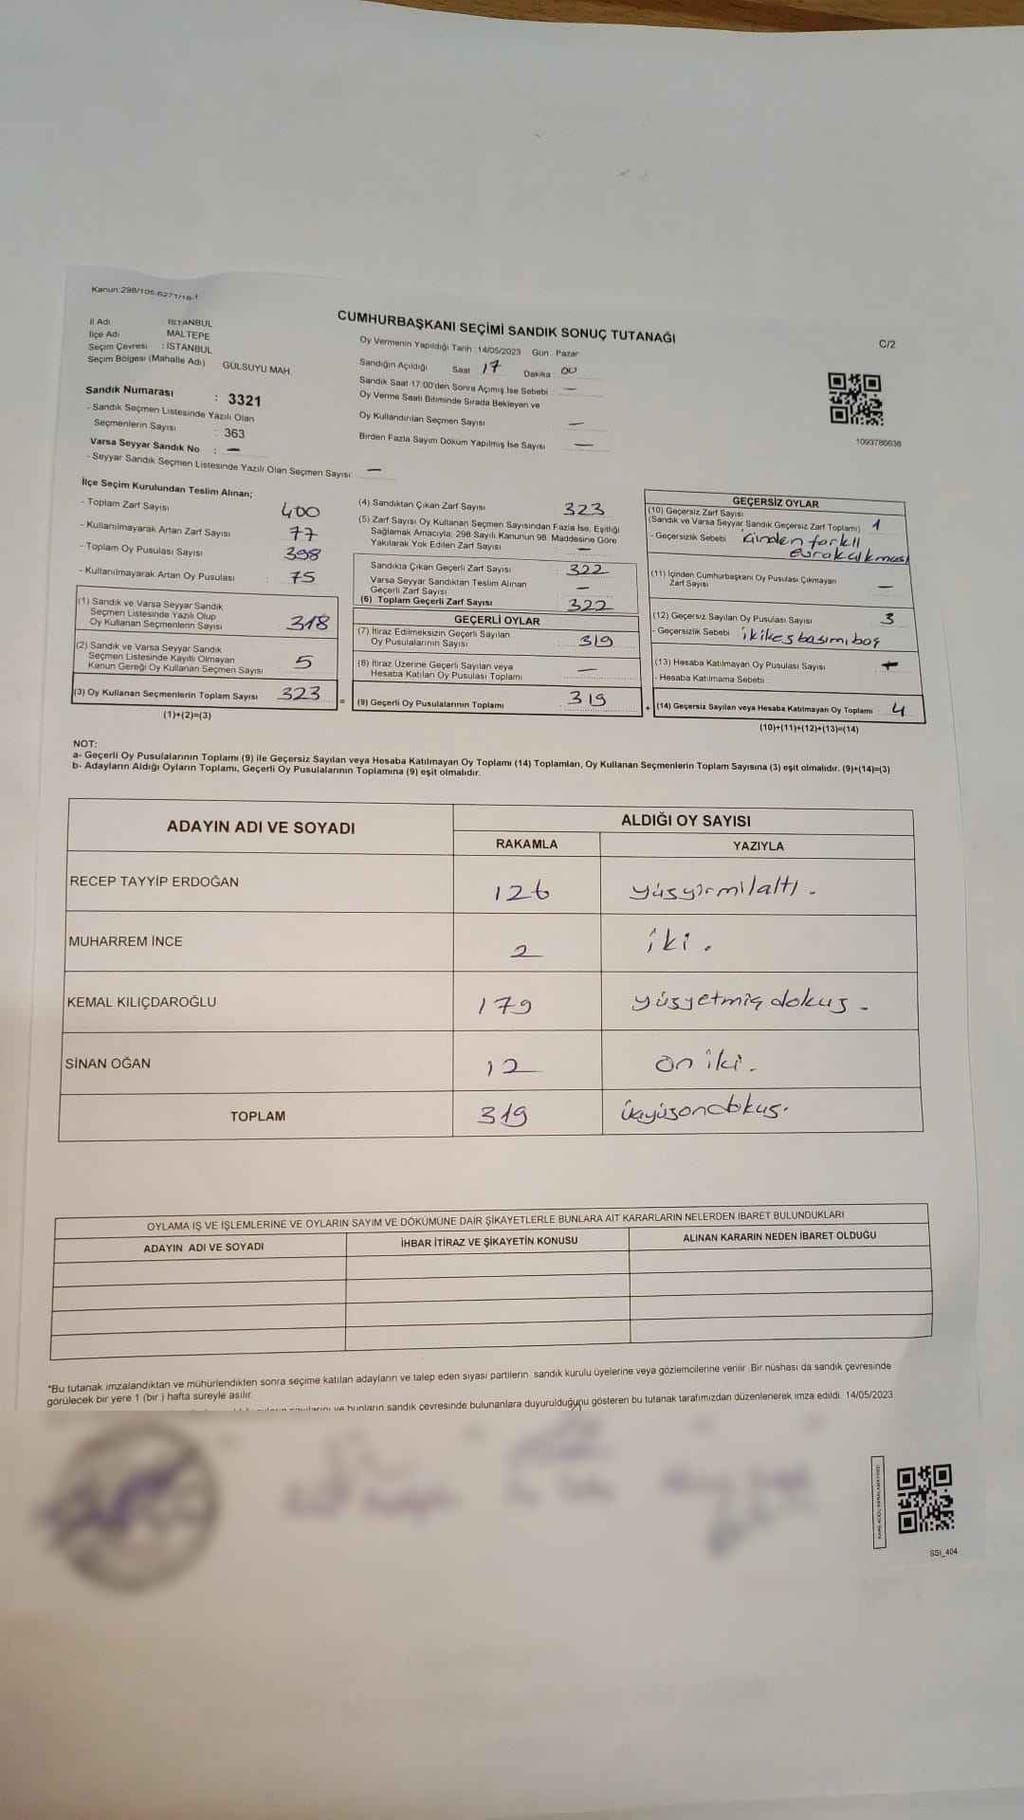 Kanun:298/105-6271/16-1
CUMHURBAŞKANI SEÇİMİ SANDIK SONUÇ TUTANAĞI
C/2
İl Adı : İSTANBUL
İlçe Adı : MALTEPE
Seçim Çevresi : İSTANBUL
Seçim Bölgesi (Mahalle Adı) GÜLSUYU MAH.
Sandık Numarası : 3321
- Sandık Seçmen Listesinde Yazılı Olan
Seçmenlerin Sayısı : 363
Varsa Seyyar Sandık No : —
- Seyyar Sandık Seçmen Listesinde Yazılı Olan Seçmen Sayısı: —
Oy Vermenin Yapıldığı Tarih : 14/05/2023 Gün : Pazar
Sandığın Açıldığı Saat 17 Dakika : 00
Sandık Saat 17:00'den Sonra Açılmış İse Sebebi : —
Oy Verme Saati Bitiminde Sırada Bekleyen ve
Oy Kullandırılan Seçmen Sayısı —
Birden Fazla Sayım Döküm Yapılmış İse Sayısı —
1093786636
İlçe Seçim Kurulundan Teslim Alınan;
- Toplam Zarf Sayısı 400
- Kullanılmayarak Artan Zarf Sayısı 77
- Toplam Oy Pusulası Sayısı 398
- Kullanılmayarak Artan Oy Pusulası : 75
(1) Sandık ve Varsa Seyyar Sandık
Seçmen Listesinde Yazılı Olup
Oy Kullanan Seçmenlerin Sayısı 318
(2) Sandık ve Varsa Seyyar Sandık
Seçmen Listesinde Kayıtlı Olmayan
Kanun Gereği Oy Kullanan Seçmen Sayısı 5
(3) Oy Kullanan Seçmenlerin Toplam Sayısı 323
(1)+(2)=(3)
(4) Sandıktan Çıkan Zarf Sayısı 323
(5) Zarf Sayısı Oy Kullanan Seçmen Sayısından Fazla İse, Eşitliği
Sağlamak Amacıyla, 298 Sayılı Kanunun 98. Maddesine Göre
Yakılarak Yok Edilen Zarf Sayısı —
Sandıkta Çıkan Geçerli Zarf Sayısı 322
Varsa Seyyar Sandıktan Teslim Alınan
Geçerli Zarf Sayısı —
(6) Toplam Geçerli Zarf Sayısı 322
GEÇERLİ OYLAR
(7) İtiraz Edilmeksizin Geçerli Sayılan
Oy Pusulalarının Sayısı : 319
(8) İtiraz Üzerine Geçerli Sayılan veya
Hesaba Katılan Oy Pusulası Toplamı —
= (9) Geçerli Oy Pusulalarının Toplamı 319
GEÇERSİZ OYLAR
(10) Geçersiz Zarf Sayısı
(Sandık ve Varsa Seyyar Sandık Geçersiz Zarf Toplamı) 1
- Geçersizlik Sebebi içinden farklı
evrak çıkması
(11) İçinden Cumhurbaşkanı Oy Pusulası Çıkmayan
Zarf Sayısı —
(12) Geçersiz Sayılan Oy Pusulası Sayısı 3
- Geçersizlik Sebebi : iki kes basımı, boş
(13) Hesaba Katılmayan Oy Pusulası Sayısı
- Hesaba Katılmama Sebebi :
+ (14) Geçersiz Sayılan veya Hesaba Katılmayan Oy Toplamı : 4
(10)+(11)+(12)+(13)=(14)
NOT:
a- Geçerli Oy Pusulalarının Toplamı (9) ile Geçersiz Sayılan veya Hesaba Katılmayan Oy Toplamı (14) Toplamları, Oy Kullanan Seçmenlerin Toplam Sayısına (3) eşit olmalıdır. (9)+(14)=(3)
b- Adayların Aldığı Oyların Toplamı, Geçerli Oy Pusulalarının Toplamına (9) eşit olmalıdır.
ADAYIN ADI VE SOYADI ALDIĞI OY SAYISI
RAKAMLA YAZIYLA
RECEP TAYYİP ERDOĞAN 126 yüzyirmialtı.
MUHARREM İNCE 2 iki.
KEMAL KILIÇDAROĞLU 179 yüzyetmiş dokuz.
SİNAN OĞAN 12 on iki.
TOPLAM 319 üçyüzondokuz.
OYLAMA İŞ VE İŞLEMLERİNE VE OYLARIN SAYIM VE DÖKÜMÜNE DAİR ŞİKAYETLERLE BUNLARA AİT KARARLARIN NELERDEN İBARET BULUNDUKLARI
ADAYIN ADI VE SOYADI İHBAR İTİRAZ VE ŞİKAYETİN KONUSU ALINAN KARARIN NEDEN İBARET OLDUĞU
*Bu tutanak imzalandıktan ve mühürlendikten sonra seçime katılan adayların ve talep eden siyasi partilerin sandık kurulu üyelerine veya gözlemcilerine verilir. Bir nüshası da sandık çevresinde
görülecek bir yere 1 (bir ) hafta süreyle asılır.
ve bunların sandık çevresinde bulunanlara duyurulduğunu gösteren bu tutanak tarafımızdan düzenlenerek imza edildi. 14/05/2023
SSI_404